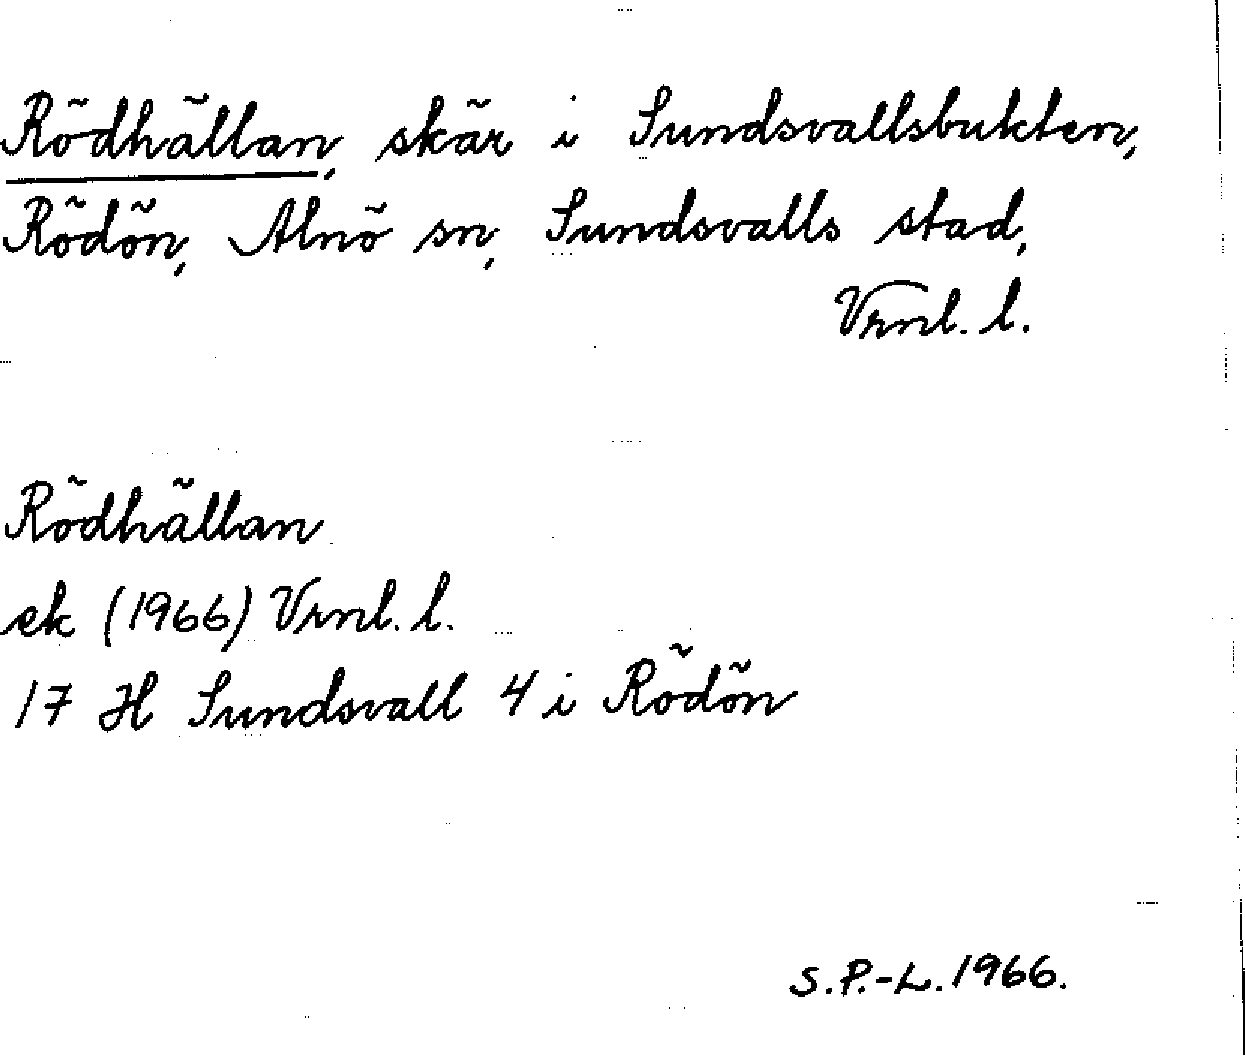 Rödhällan, skär i Sundsvallsbukten,
Rödön, Alnö sn, Sundsvalls stad,
Vrnl. l.
Rödhällan
ek (1966) Vrnl. l.
17 H Sundsvall 4 i Rödön
S.P.-L. 1966.